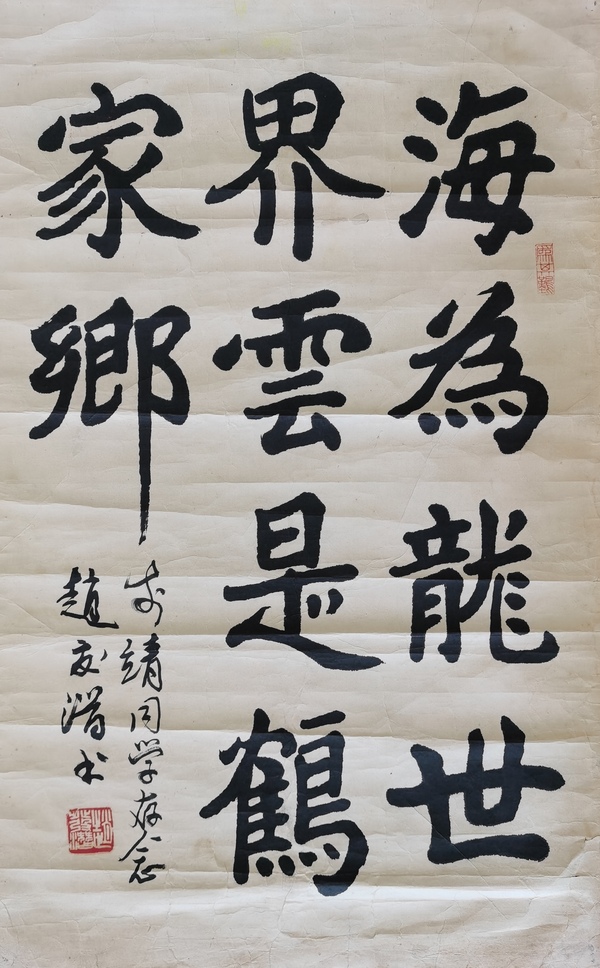 海為龍世
界雲是鶴
家鄉
靖同学存念
趙書